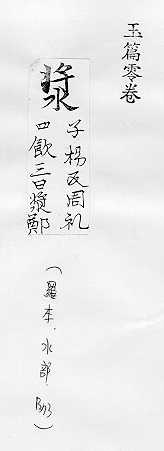 玉篇零卷
漿
子楊反周礼
四飲三曰漿鄭
(羅本·水部·B73)